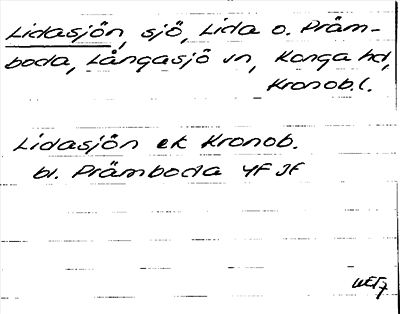 Lidasjön, sjö, Lida o. Präm-
boda, Långasjö sn, Konga hd,
Kronob.l.
Lidasjön ek Kronob.
bl. Prämboda 4F 3f